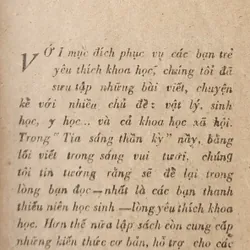 VỚI mục đích phục vụ các bạn trẻ
yêu thích khoa học, chúng tôi đã
sưu tập những bài viết, chuyện
kể với nhiều chủ đề: vật lý, sinh
học, y học... và cả khoa học xã hội.
Trong "Tia sáng thần kỳ" nầy, bằng
lối viết trong sáng vui tươi, chúng
tôi tin tưởng rằng sẽ để lại trong
lòng bạn đọc—nhất là các bạn thanh
thiếu niên học sinh—lòng yêu thích khoa
học. Hơn thế nữa lập sách còn cung cấp
những kiến thức cơ bản, hỗ trợ cho các